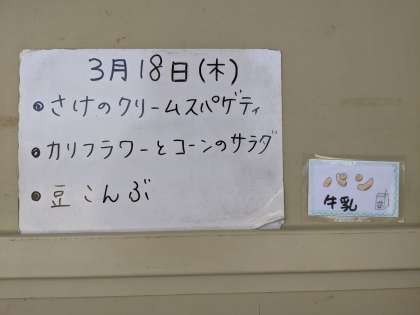 3月18日(木)
●さけのクリームスパゲティ
●カリフラワーとコーンのサラダ
●豆こんぶ
パン
牛乳